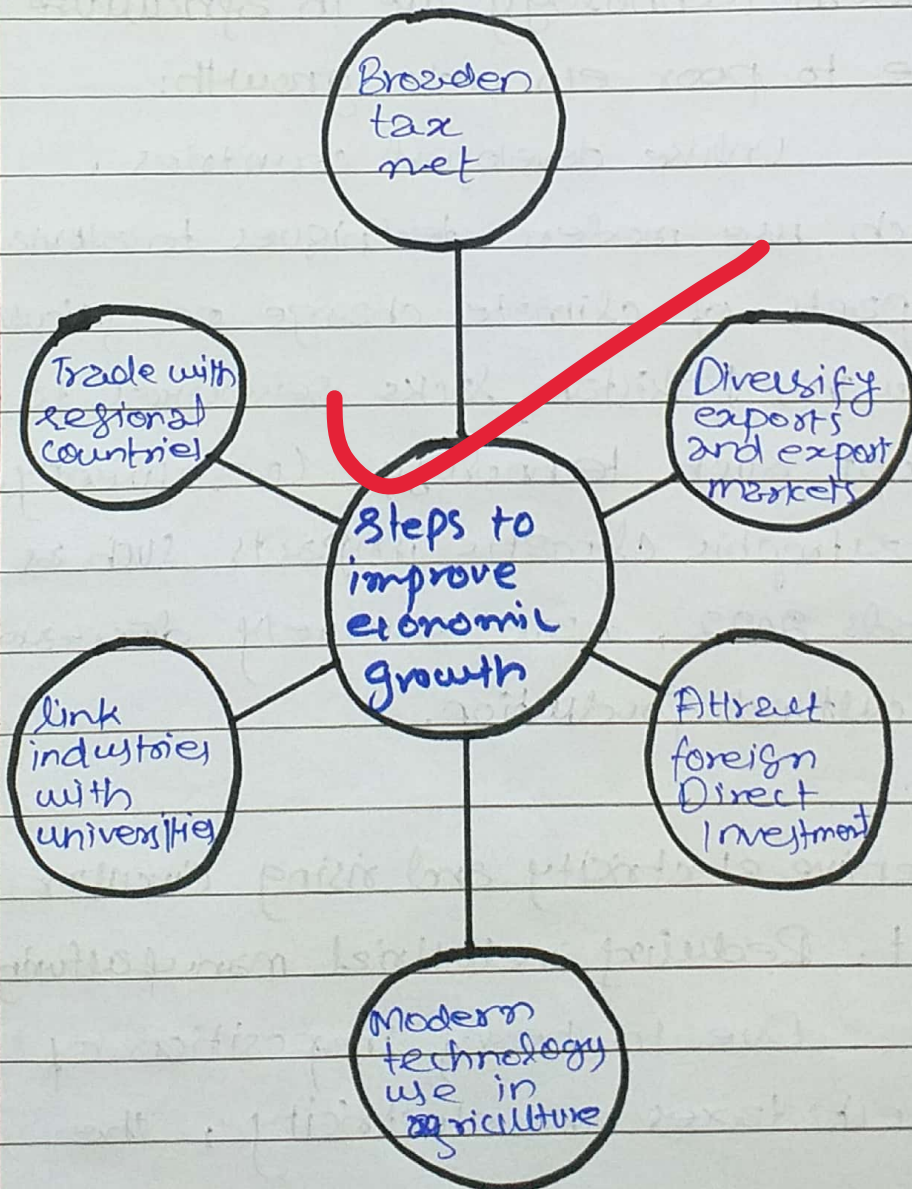 Broaden
tax
net
Trade with
regional
countries
Diversify
exports
and export
markets
Steps to
improve
economic
growth
link
industries
with
universities
Attract
foreign
Direct
Investment
Modern
technology
use in
agriculture